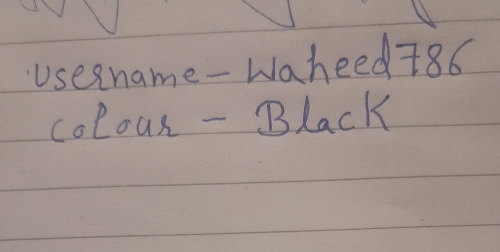 Username - Waheed786
Colour - Black